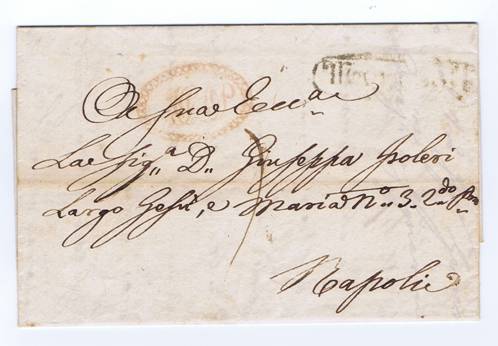 A Sua Ecc.a
La Sig.a D. Giuseppa Isoleri
Largo Gesù, e Maria N.o 3. 2.do
Napoli